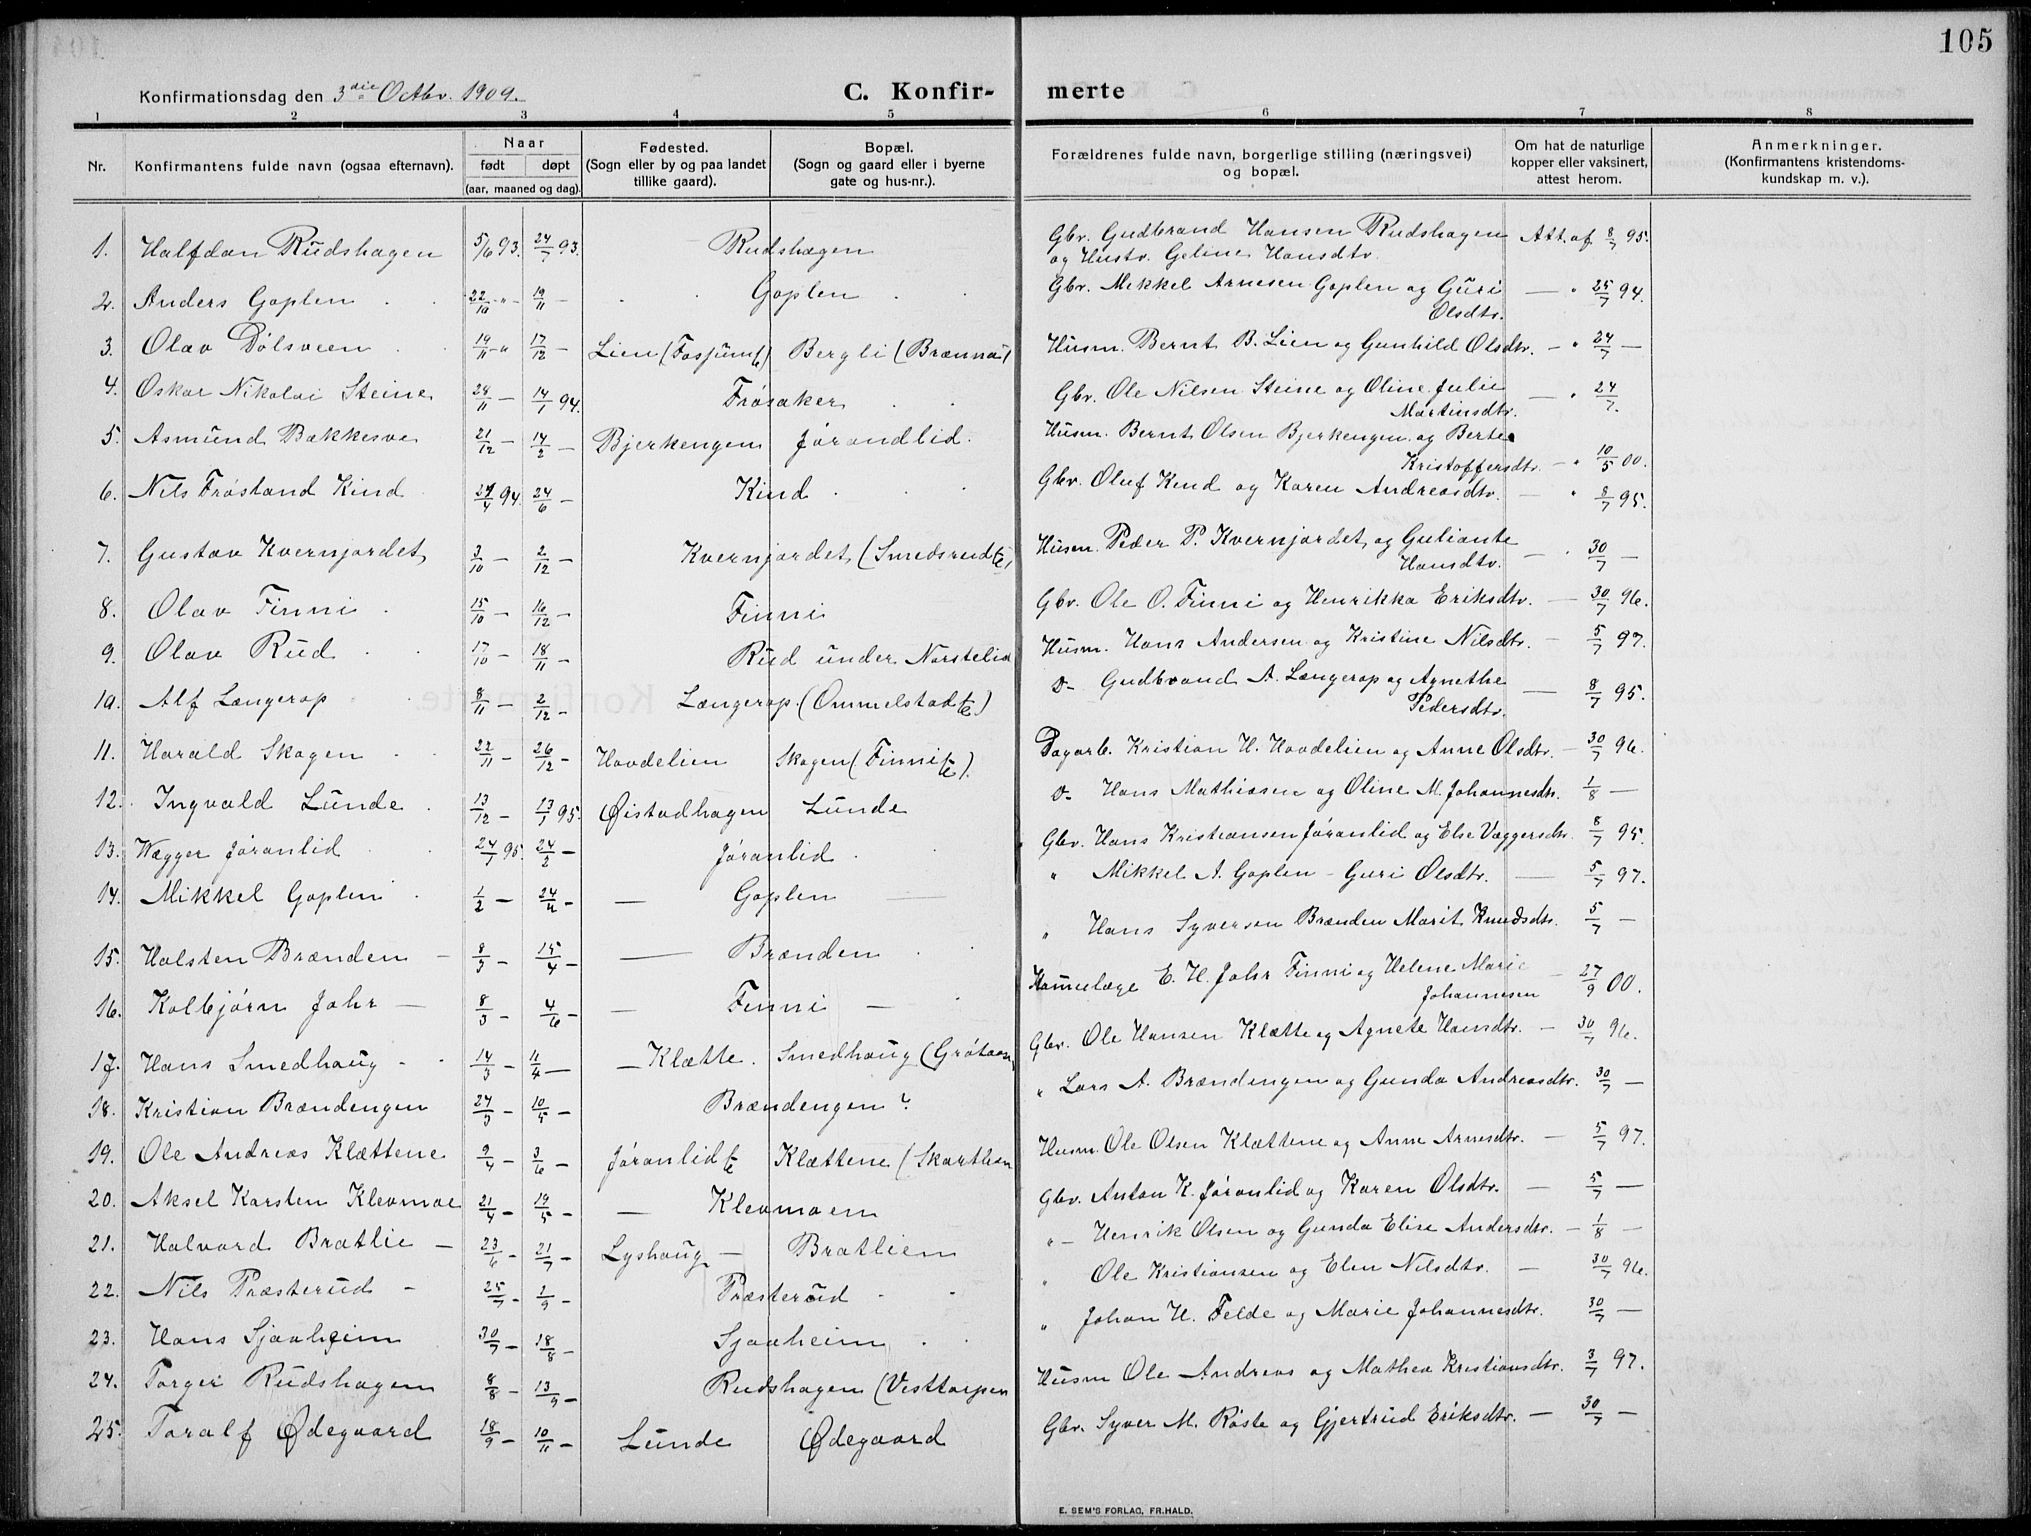 105
Konfirmationsdag den 3die Octbr. 1909.
C. Konfir- merte
1 2 3 4 5 6 7 8
Nr. Konfirmantens fulde navn (ogsaa efternavn). Naar født døpt (aar, maaned og dag). Fødested. (Sogn eller by og paa landet tillike gaard). Bopæl. (Sogn og gaard eller i byerne gate og hus-nr.). Forældrenes fulde navn, borgerlige stilling (næringsvei) og bopæl. Om hat de naturlige kopper eller vaksinert, attest herom. Anmerkninger. (Konfirmantens kristendoms- kundskap m. v.).
1. Halfdan Rudshagen 5/6 93. 24/7 93. Rudshagen Gbr. Gudbrand Hansen Rudshagen Att. af 8/7 95.
og Hustr. Geline Hansdtr.
2. Anders Goplen 22/10 - " - 19/11 - Goplen Gbr. Mekkel Arnesen Goplen og Guri — " 25/7 94.
Olsdtr.
3. Olav Dølsveen 19/11 - " 17/12 - Lien (Fosjumst) Bergli (Brænna) Husm. Bernt B. Lien og Gunhild Olsdtr. — " 24/7 —
4. Oskar Nikolai Steine 28/11 — 14/1 94. Frøsaker Gbr. Ole Nilsen Steine og Oline Julie — " 24/7.
Martinsdtr.
5. Asmund Bakkesve 21/12 — 14/2 — Bjerkengen Jørandlid. Husm. Bernt Olsen Bjerkengen og Berte
Kristoffersdtr. — " 10/5 00.
6. Nils Frøsland Kind 29/4 94. 24/6 — Kind Gbr. Oluf Kind og Karen Andreasdtr. — " 8/7 95.
7. Gustav Kvernjordet 3/10 — 2/12 — Kvernjordet (Smedsrudte) Husm. Peder P. Kvernjordet og Guliante — " 30/7 —
Hansdtr.
8. Olav Finni 15/10 — 16/12 — Finni Gbr. Ole O. Finni og Henrikka Eriksdtr. — 30/7 96.
9. Olav Rud 17/10 — 18/11 — Rud under Norstelid Husm. Hans Andersen og Kristine Nilsdtr. — 5/7 97.
10. Alf Længerop 8/11 — 2/12 — Længerop. (Ommelstadte) D- Gudbrand A. Længerop og Agnethe — 8/7 95.
Pedersdtr.
11. Harald Skogen 22/11 — 26/12 — Hovdelien Skogen (Finni te). Dagarb. Kristian H. Hovdelien og Anne Olsdtr. — 30/7 96.
12. Ingvald Lunde 13/12 — 13/1 95. Øistadhagen Lunde D- Hans Mathiasen og Oline M. Johannesdtr. 1/8 —
13. Wægger Jøranlid 24/1 95. 24/2 — Jøranlid Gbr. Hans Kristiansen Jøranlid og Else Væggersdtr. 8/7 95.
14. Mikkel Goplen 1/2 — 24/4 — — Goplen — " Mikkel A. Goplen - Guri Olsdtr. — 5/7 97.
15. Halsten Brænden — 8/3 — 15/4 — — Brænden " Hans Syversen Brænden Marit Knudsdtr. 5/7 —
16. Kolbjørn Johr — 8/3 — 4/6 — — Finni — E. H. Johr Finni og Helene Marie — 27/9 00.
Johannesen
17. Hans Smedhaug 14/3 — 11/4 — — Klætte. Smedhaug (Grøtaen) Gbr. Ole Hansen Klætte og Agnete Hansdtr. — 30/7 96.
18. Kristian Brændengen 27/3 — 10/5 — Brændengen ? " Lars A. Brændengen og Gunda Andreasdtr. 30/7 —
19. Ole Andreas Klættene 9/4 — 3/6 — Jøranlid te Klættene (Skartlien Husm. Ole Olsen Klættene og Anne Arnesdtr. — 5/7 97.
20. Aksel Karsten Klevmoe 21/4 — 19/5 — — Klevmoen Gbr. Anton K. Jøranlid og Karen Olsdtr. — 5/7 —
21. Halvard Bratlie — 23/6 — 21/7 — Lyshaug — Bratlien " — Henrik Olsen og Gunda Elise Andersdtr. — 1/8 —
22. Nils Præsterud — 25/7 — 1/9 — Præsterud " Ole Kristiansen og Elen Nilsdtr. — 30/7 96.
23. Hans Sjaaheim 30/7 — 18/8 — Sjaaheim " Johan H. Felde og Marie Johannesdtr. 30/7 —
24. Torger Rudshagen 8/8 — 13/9 — Rudshagen (Vesttorpen Husm Ole Andreas og Mathea Kristiansdtr. 3/7 97.
25. Toralf Ødegaard 18/9 — 10/11 — Lunde Ødegaard Gbr. Syver M. Røste og Gjertrud Eriksdtr. — 30/7 —
E. SEM'S FORLAG, FR.HALD.